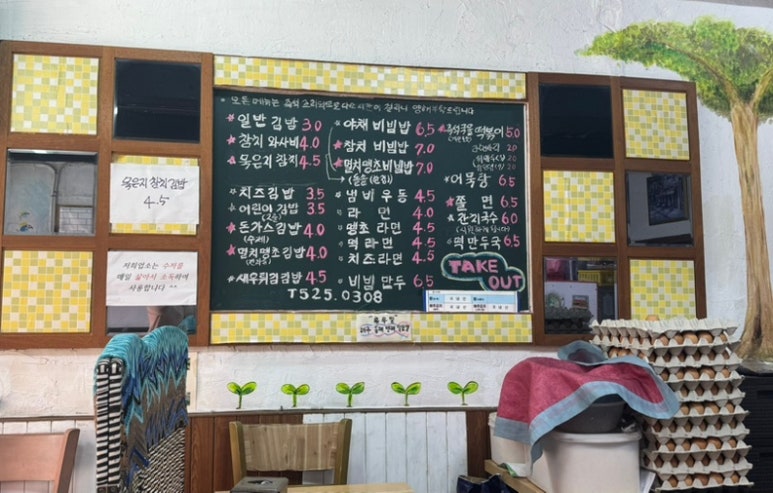 일반김밥 3.0
참치 와사비 4.0
묵은지 참치 4.5
치즈김밥 3.5
어린이 김밥 3.5
돈가스김밥 4.0
멸치땡초김밥 4.0
새우튀김김밥 4.5
T525.0308
야채 비빔밥 6.5
참치 비빔밥 7.0
멸치땡초비빔밥 7.0
냄비우동 4.5
라면 4.0
땡초라면 4.5
떡라면 4.5
치즈라면 4.5
비빔만두 6.5
떡볶이 5.0
어묵탕 6.5
쫄면 6.5
잔치국수 6.0
떡만두국 6.5
TAKE
OUT
묵은지 참치김밥
4.5
저희업소는 수저를
매일 삶아서 소독하여
사용합니다 ^^